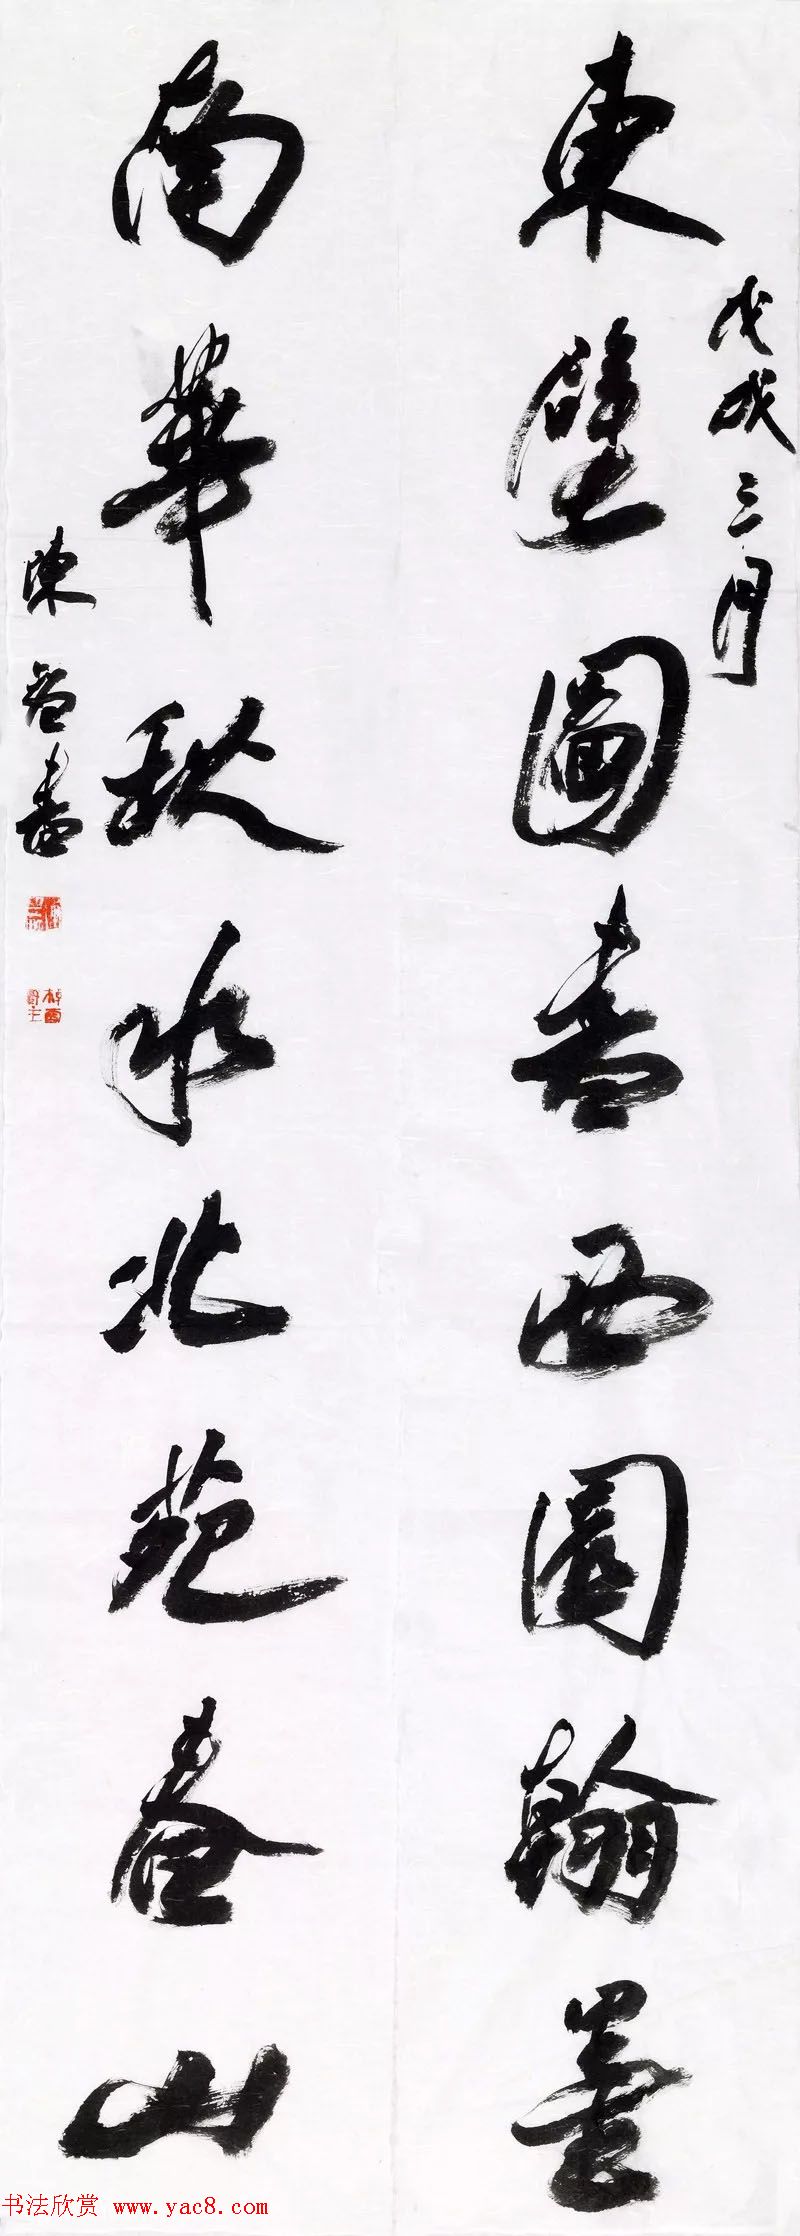 東壁圖書西園翰墨
戊戌三月
南華秋水北苑春山
陳智書
书法欣赏 www.yac8.com